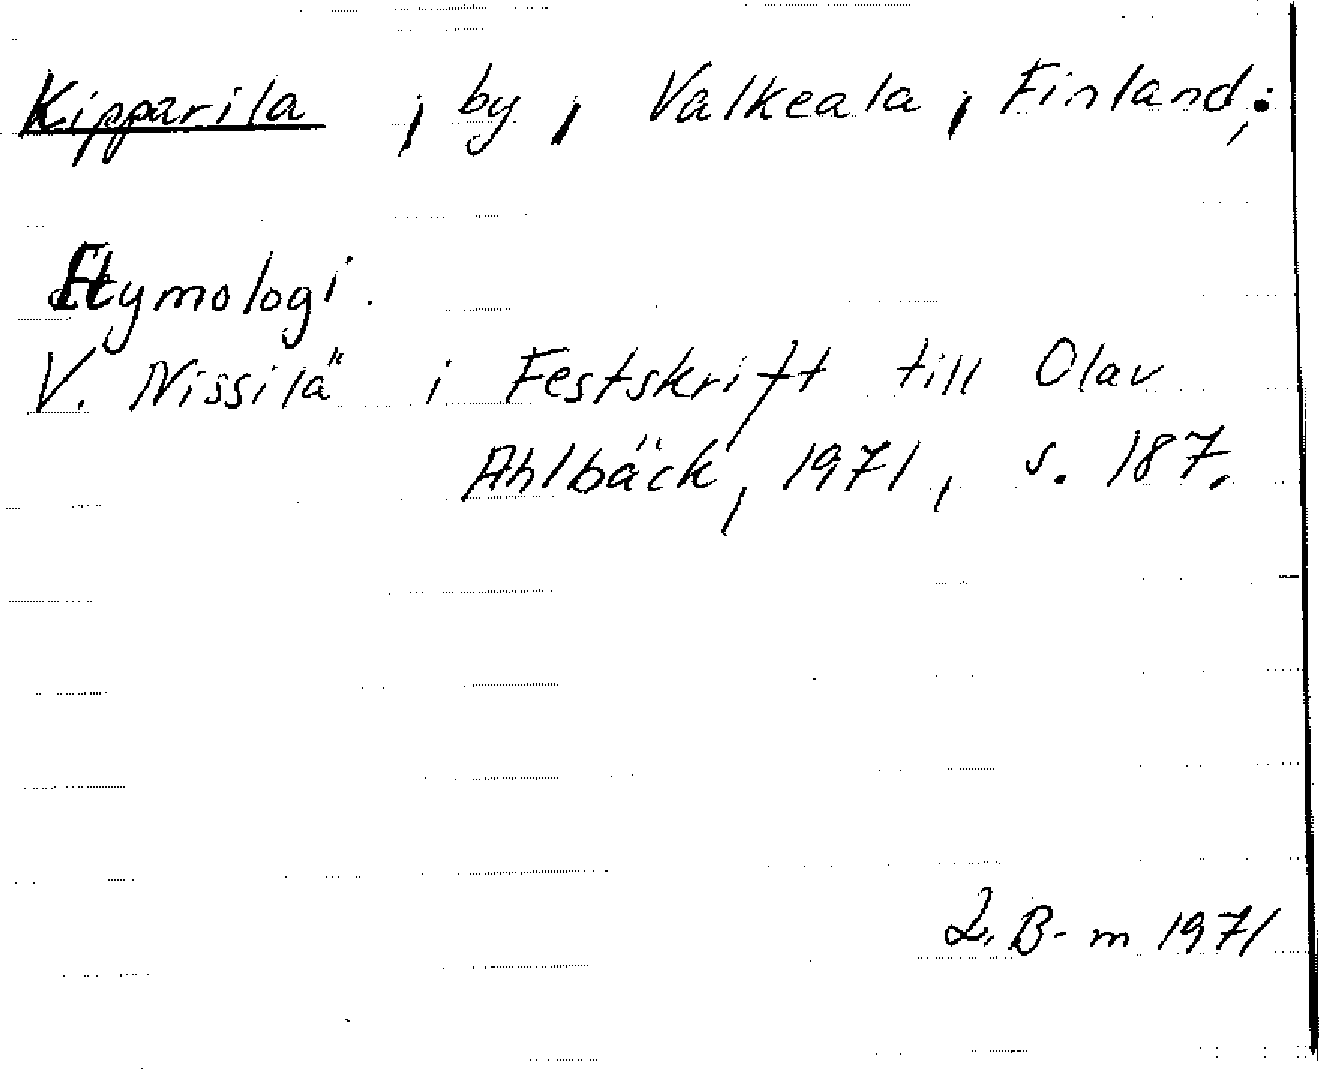 Kipparila, by, Valkeala, Finland,:
Etymologi.
V. Nissilä i Festskrift till Olav
Ahlbäck, 1971, s. 187.
L. B-m 1971